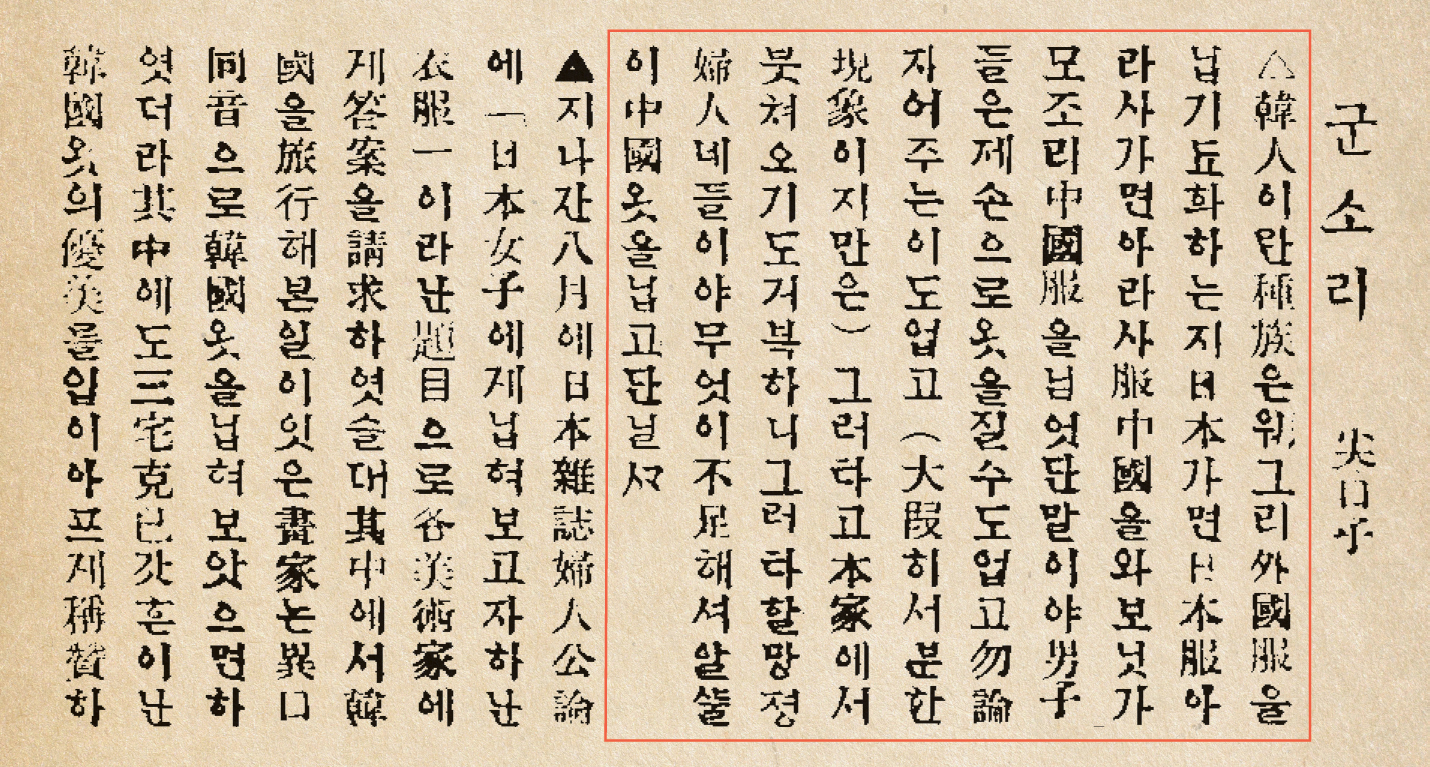 군소리 尖口子
△韓人이란種族은웨그리外國服을
닙기됴화하는지日本가면日本服아
라사가면아라사服中國을와보닛가
모조리中國服을닙엇단말이야男子
들은제손으로옷을질수도업고勿論
자어주는이도업고(大段히서분한
現象이지만은)그러타고本家에서
붓쳐오기도거북하니그러타할망정
婦人네들이야무엇이不足해셔알ᄯᅳᆯ
이中國옷을닙고단닐ᄭᅡ
▲지나잔八月에日本雜誌婦人公論
에「日本女子에게닙혀보고자하난
衣服一이라난題目으로各美術家에
게答案을請求하엿슬대其中에서韓
國을旅行해본일이잇은畵家는異口
同音으로韓國옷을닙혀보앗으면하
엿더라其中에도三宅克己갓흔이난
韓國옷의優美를입이아프게稱賛하